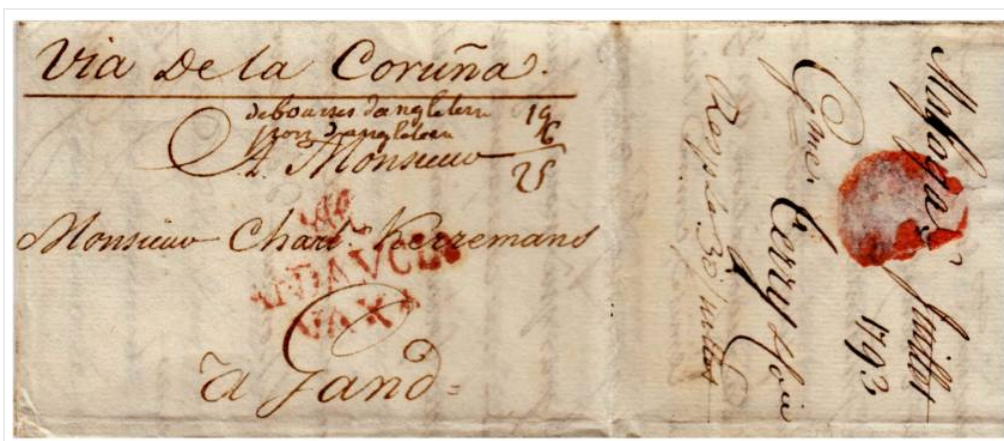 Via De la Coruña.
debourses dangleterre 19
port d'angleterre 6
A Monsieur 25
Monsieur Charl. Kerremans
ANDALUCIA
BAXA
à Gand=
Malaga juillet
1793
Terry &
Resp. le 30 juillet